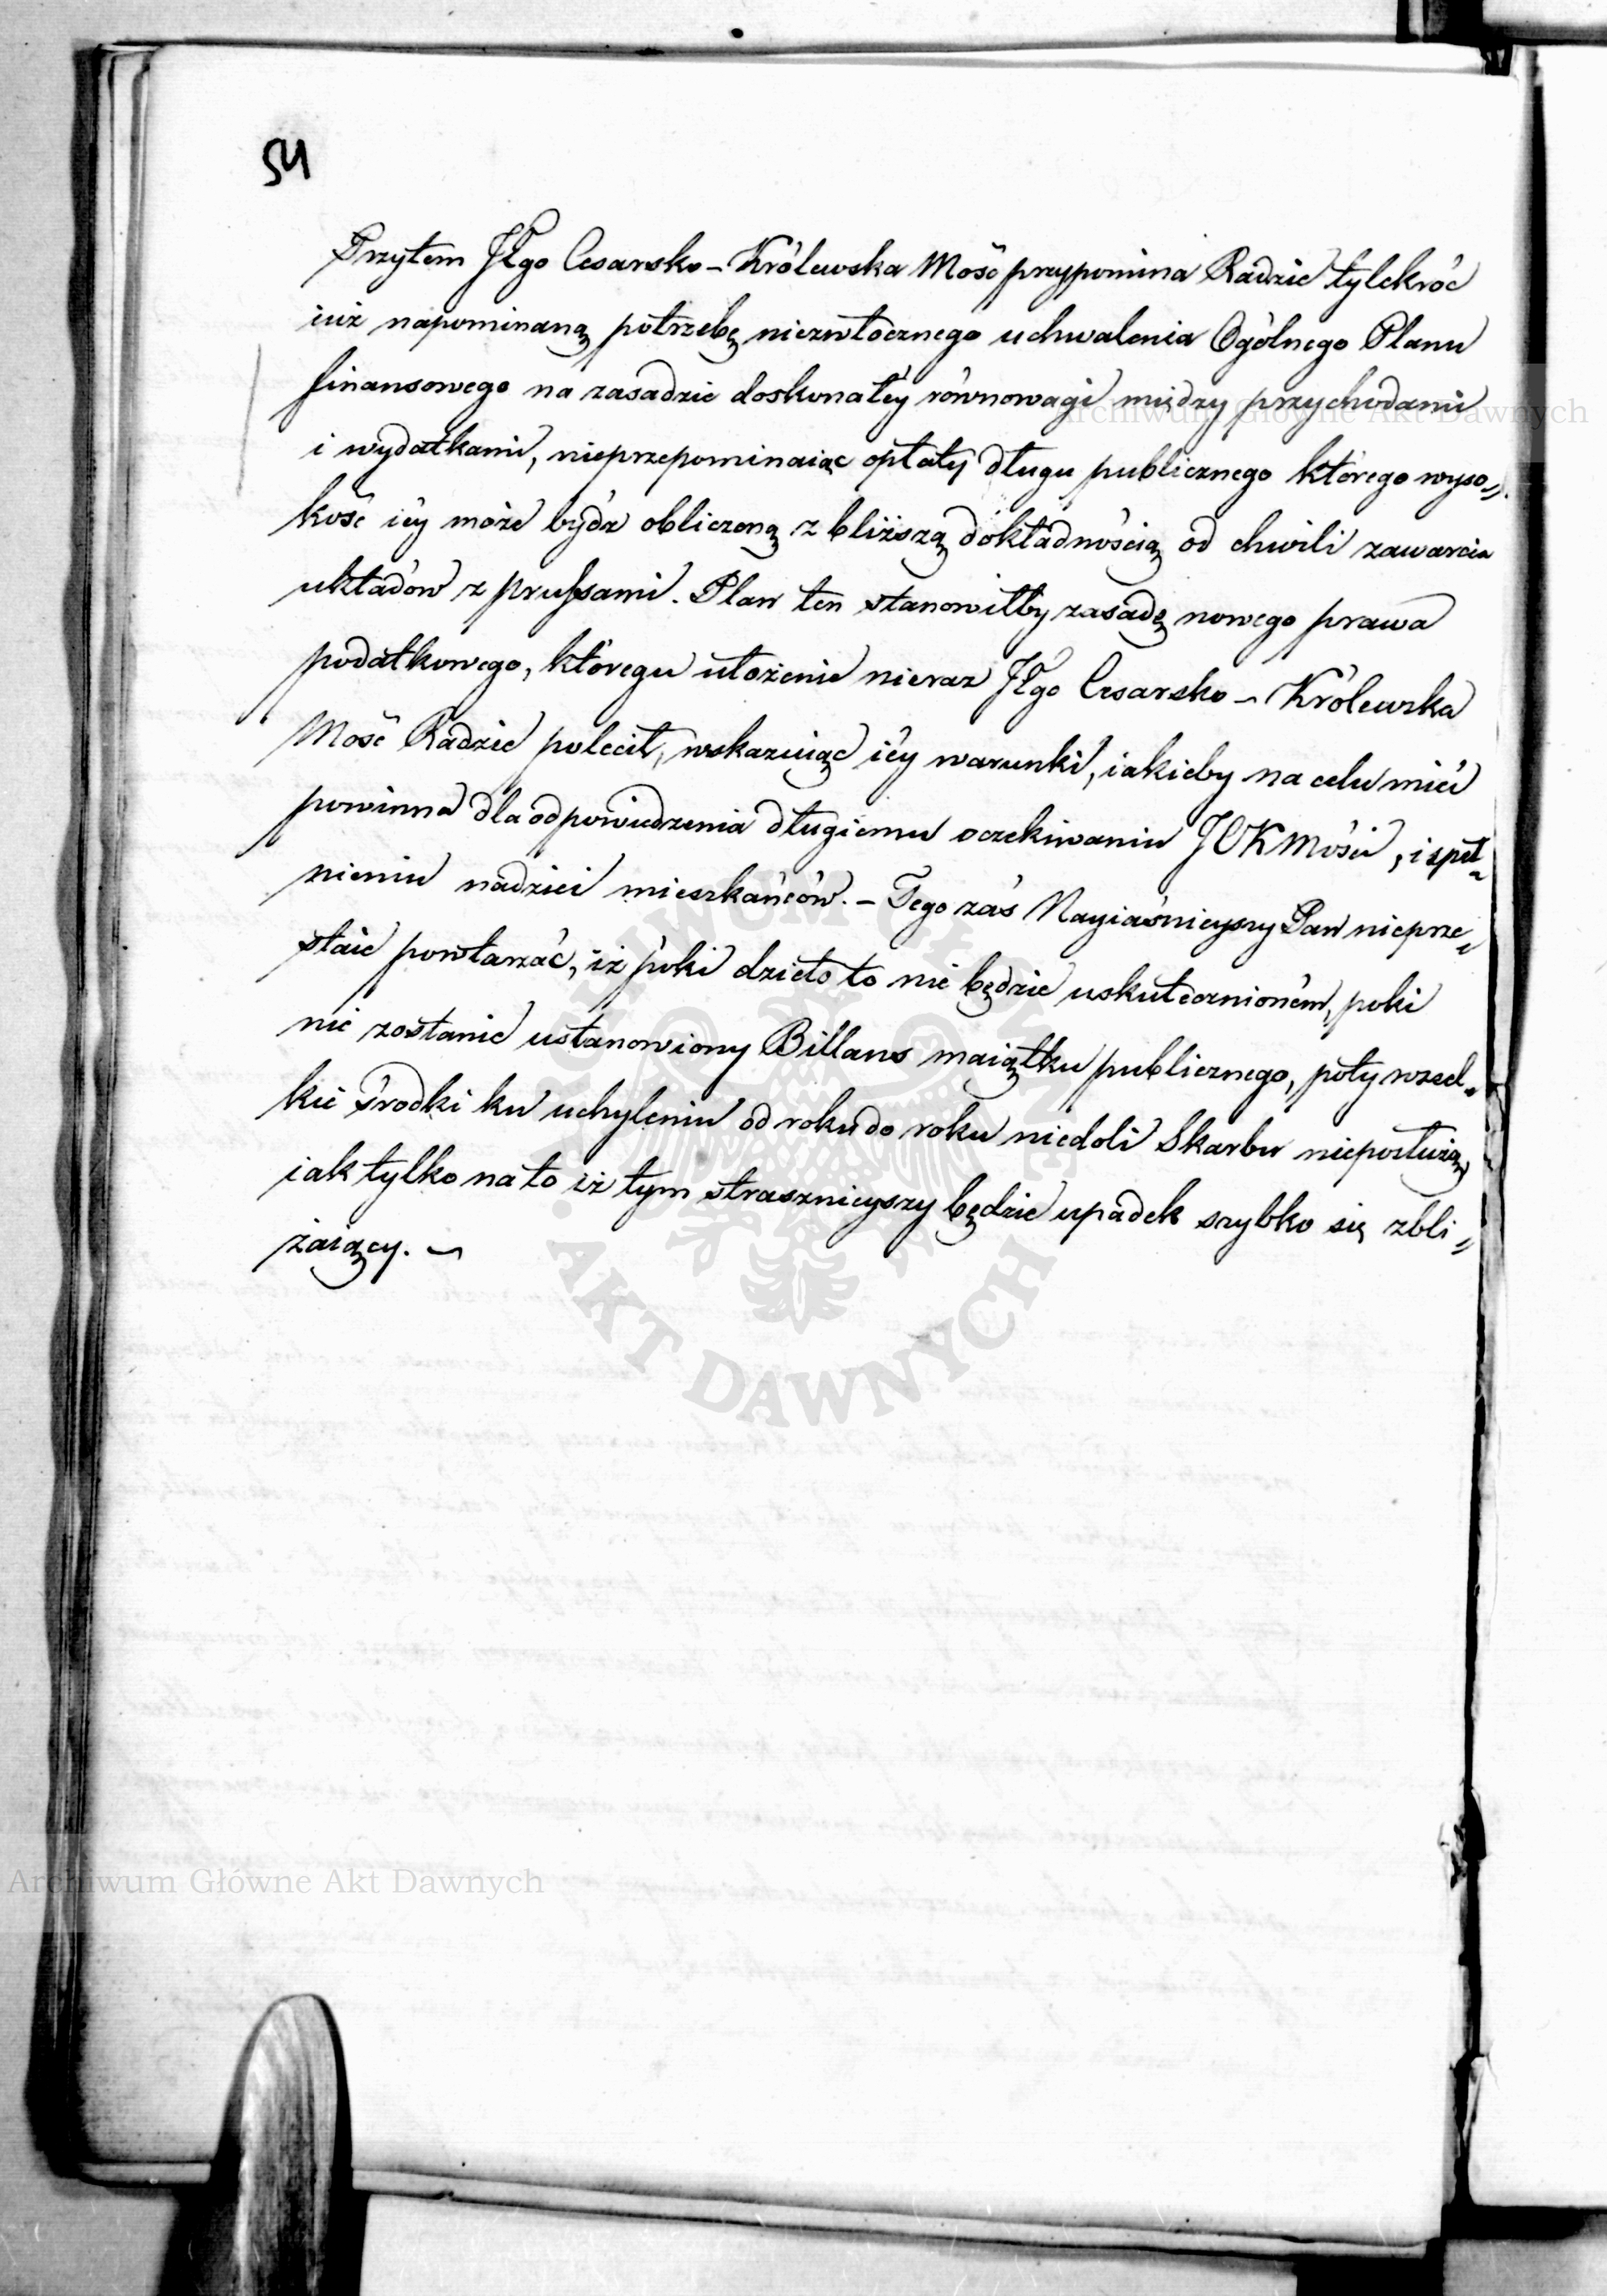 54
Przytem JEgo Cesarsko-Królewska Mość przypomina Radzie tylekroć
iuż napominaną potrzebę niezwłocznego uchwalenia Ogólnego Planu
finansowego na zasadzie doskonałéy równowagi między przychodami
i wydatkami, nieprzepominaiąc opłaty długu publicznego którego wyso„
kość iéy może bydź obliczoną z bliższą dokładnością od chwili zawarcia
układów z prussami. Plan ten stanowiłby zasadę nowego prawa
podatkowego, którego ułożenie nieraz JEgo Cesarsko-Królewska
Mość Radzie polecił, wskazuiąc iéy warunki, iakieby na celu mieć
powinna dla odpowiedzenia długiemu oczekiwaniu JCKMości, i speł„
nieniu nadziei mieszkańców. - Tego zaś Nayiaśnieyszy Pan nieprze„
staie powtarzać, iż póki dzieło to nie będzie uskutecznioném, póki
nie zostanie ustanowiony Billans maiątku publicznego, póty wszel„
kie środki ku uchyleniu od roku do roku niedoli Skarbu nieposłużą
iak tylko na to iż tym strasznieyszy będzie upadek szybko się zbli„
żaiący. ~
Archiwum Główne Akt Dawnych
ARCHIWUM GŁÓWNE
AKT DAWNYCH
Archiwum Główne Akt Dawnych